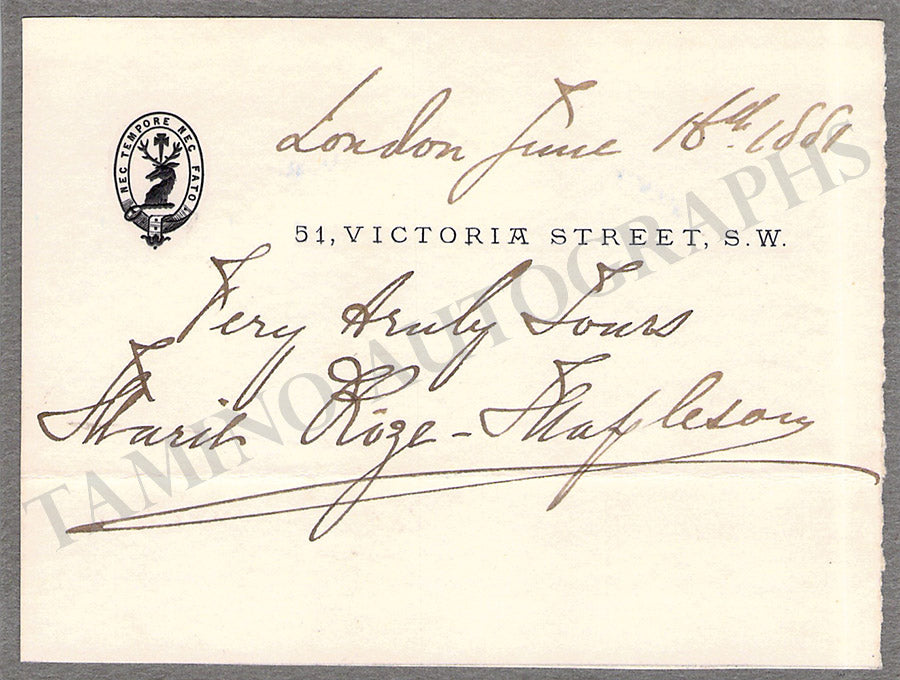 London June 18th. 1881
NEC TEMPORE NEC FATO
51, VICTORIA STREET, S.W.
Very truly Yours
Marie Rôze - Mapleson
TAMINO AUTOGRAPHS